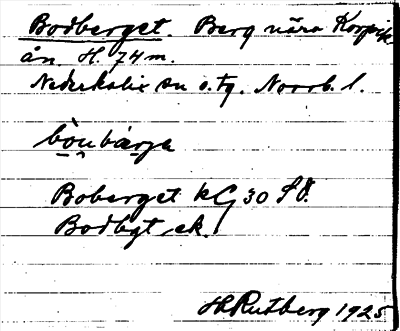 Bodberget. Berg nära Korpik-
ån. H. 74 m.
Nederkalix sn o. tg. Norrb. l.
bòubárja
Boberget kG 30 SO.
Bodbgt ek.
H Rutberg 1925